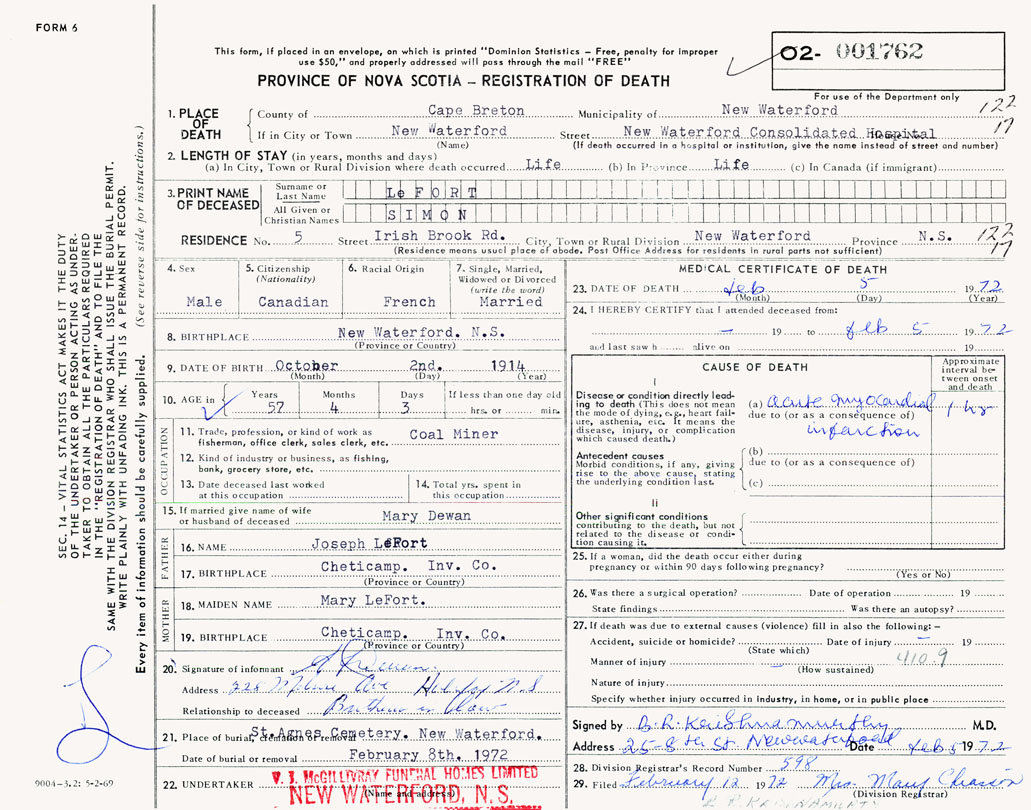 FORM 6
This form, if placed in an envelope, on which is printed "Dominion Statistics — Free, penalty for improper
use $50," and properly addressed will pass through the mail "FREE"
PROVINCE OF NOVA SCOTIA — REGISTRATION OF DEATH
02- 001762
For use of the Department only
1. PLACE OF DEATH
County of Cape Breton Municipality of New Waterford 122
If in City or Town New Waterford Street New Waterford Consolidated Hospital 17
(Name) (If death occurred in a hospital or institution, give the name instead of street and number)
2. LENGTH OF STAY (in years, months and days)
(a) In City, Town or Rural Division where death occurred Life (b) In Province Life (c) In Canada (if immigrant)
3. PRINT NAME OF DECEASED
Surname or Last Name LeFORT
All Given or Christian Names SIMON
RESIDENCE No. 5 Street Irish Brook Rd. City, Town or Rural Division New Waterford Province N.S. 122
(Residence means usual place of abode. Post Office Address for residents in rural parts not sufficient) 17
4. Sex
Male
5. Citizenship (Nationality)
Canadian
6. Racial Origin
French
7. Single, Married, Widowed or Divorced (write the word)
Married
8. BIRTHPLACE New Waterford. N.S.
(Province or Country)
9. DATE OF BIRTH October 2nd. 1914
(Month) (Day) (Year)
10. AGE in Years Months Days If less than one day old
57 4 3 hrs. or min.
OCCUPATION
11. Trade, profession, or kind of work as fisherman, office clerk, sales clerk, etc. Coal Miner
12. Kind of industry or business, as fishing, bank, grocery store, etc.
13. Date deceased last worked at this occupation
14. Total yrs. spent in this occupation
15. If married give name of wife or husband of deceased Mary Dewan
FATHER
16. NAME Joseph LeFort
17. BIRTHPLACE Cheticamp. Inv. Co.
(Province or Country)
MOTHER
18. MAIDEN NAME Mary LeFort.
19. BIRTHPLACE Cheticamp. Inv. Co.
(Province or Country)
20. Signature of informant
Address Ave N S
Relationship to deceased Brother in Law
21. Place of burial, cremation or removal St. Agnes Cemetery. New Waterford.
Date of burial or removal February 8th. 1972
22. UNDERTAKER V. J. McGILLIVRAY FUNERAL HOMES LIMITED
(Name and address)
NEW WATERFORD, N.S.
MEDICAL CERTIFICATE OF DEATH
23. DATE OF DEATH Feb 5 1972
(Month) (Day) (Year)
24. I HEREBY CERTIFY that I attended deceased from:
— 19 to Feb 5 1972
and last saw h alive on 19
CAUSE OF DEATH
Approximate interval between onset and death
I
Disease or condition directly leading to death (This does not mean the mode of dying, e.g., heart failure, asthenia, etc. It means the disease, injury, or complication which caused death.)
(a) acute myocardial 1 hr
due to (or as a consequence of)
infarction
Antecedent causes
Morbid conditions, if any, giving rise to the above cause, stating the underlying condition last.
(b)
due to (or as a consequence of)
(c)
II
Other significant conditions
contributing to the death, but not related to the disease or condition causing it.
25. If a woman, did the death occur either during
pregnancy or within 90 days following pregnancy?
(Yes or No)
26. Was there a surgical operation? Date of operation 19
State findings Was there an autopsy?
27. If death was due to external causes (violence) fill in also the following:—
Accident, suicide or homicide? Date of injury — 19
(State which) 410.9
Manner of injury —
(How sustained)
Nature of injury
Specify whether injury occurred in industry, in home, or in public place
Signed by B. R. Krishnamurthy M.D.
Address 25-8th St. Newwaterford Date Feb 5 1972
28. Division Registrar's Record Number 598
29. Filed February 12 1972 Mrs. Mary Chiasson
(Division Registrar)
SEC. 14 — VITAL STATISTICS ACT MAKES IT THE DUTY
OF THE UNDERTAKER OR PERSON ACTING AS UNDER-
TAKER TO OBTAIN ALL THE PARTICULARS REQUIRED
IN THE "REGISTRATION OF DEATH" AND TO FILE THE
SAME WITH THE DIVISION REGISTRAR WHO SHALL ISSUE THE BURIAL PERMIT.
WRITE PLAINLY WITH UNFADING INK. THIS IS A PERMANENT RECORD.
Every item of information should be carefully supplied. (See reverse side for instructions.)
9004-3.2: 5-2-69